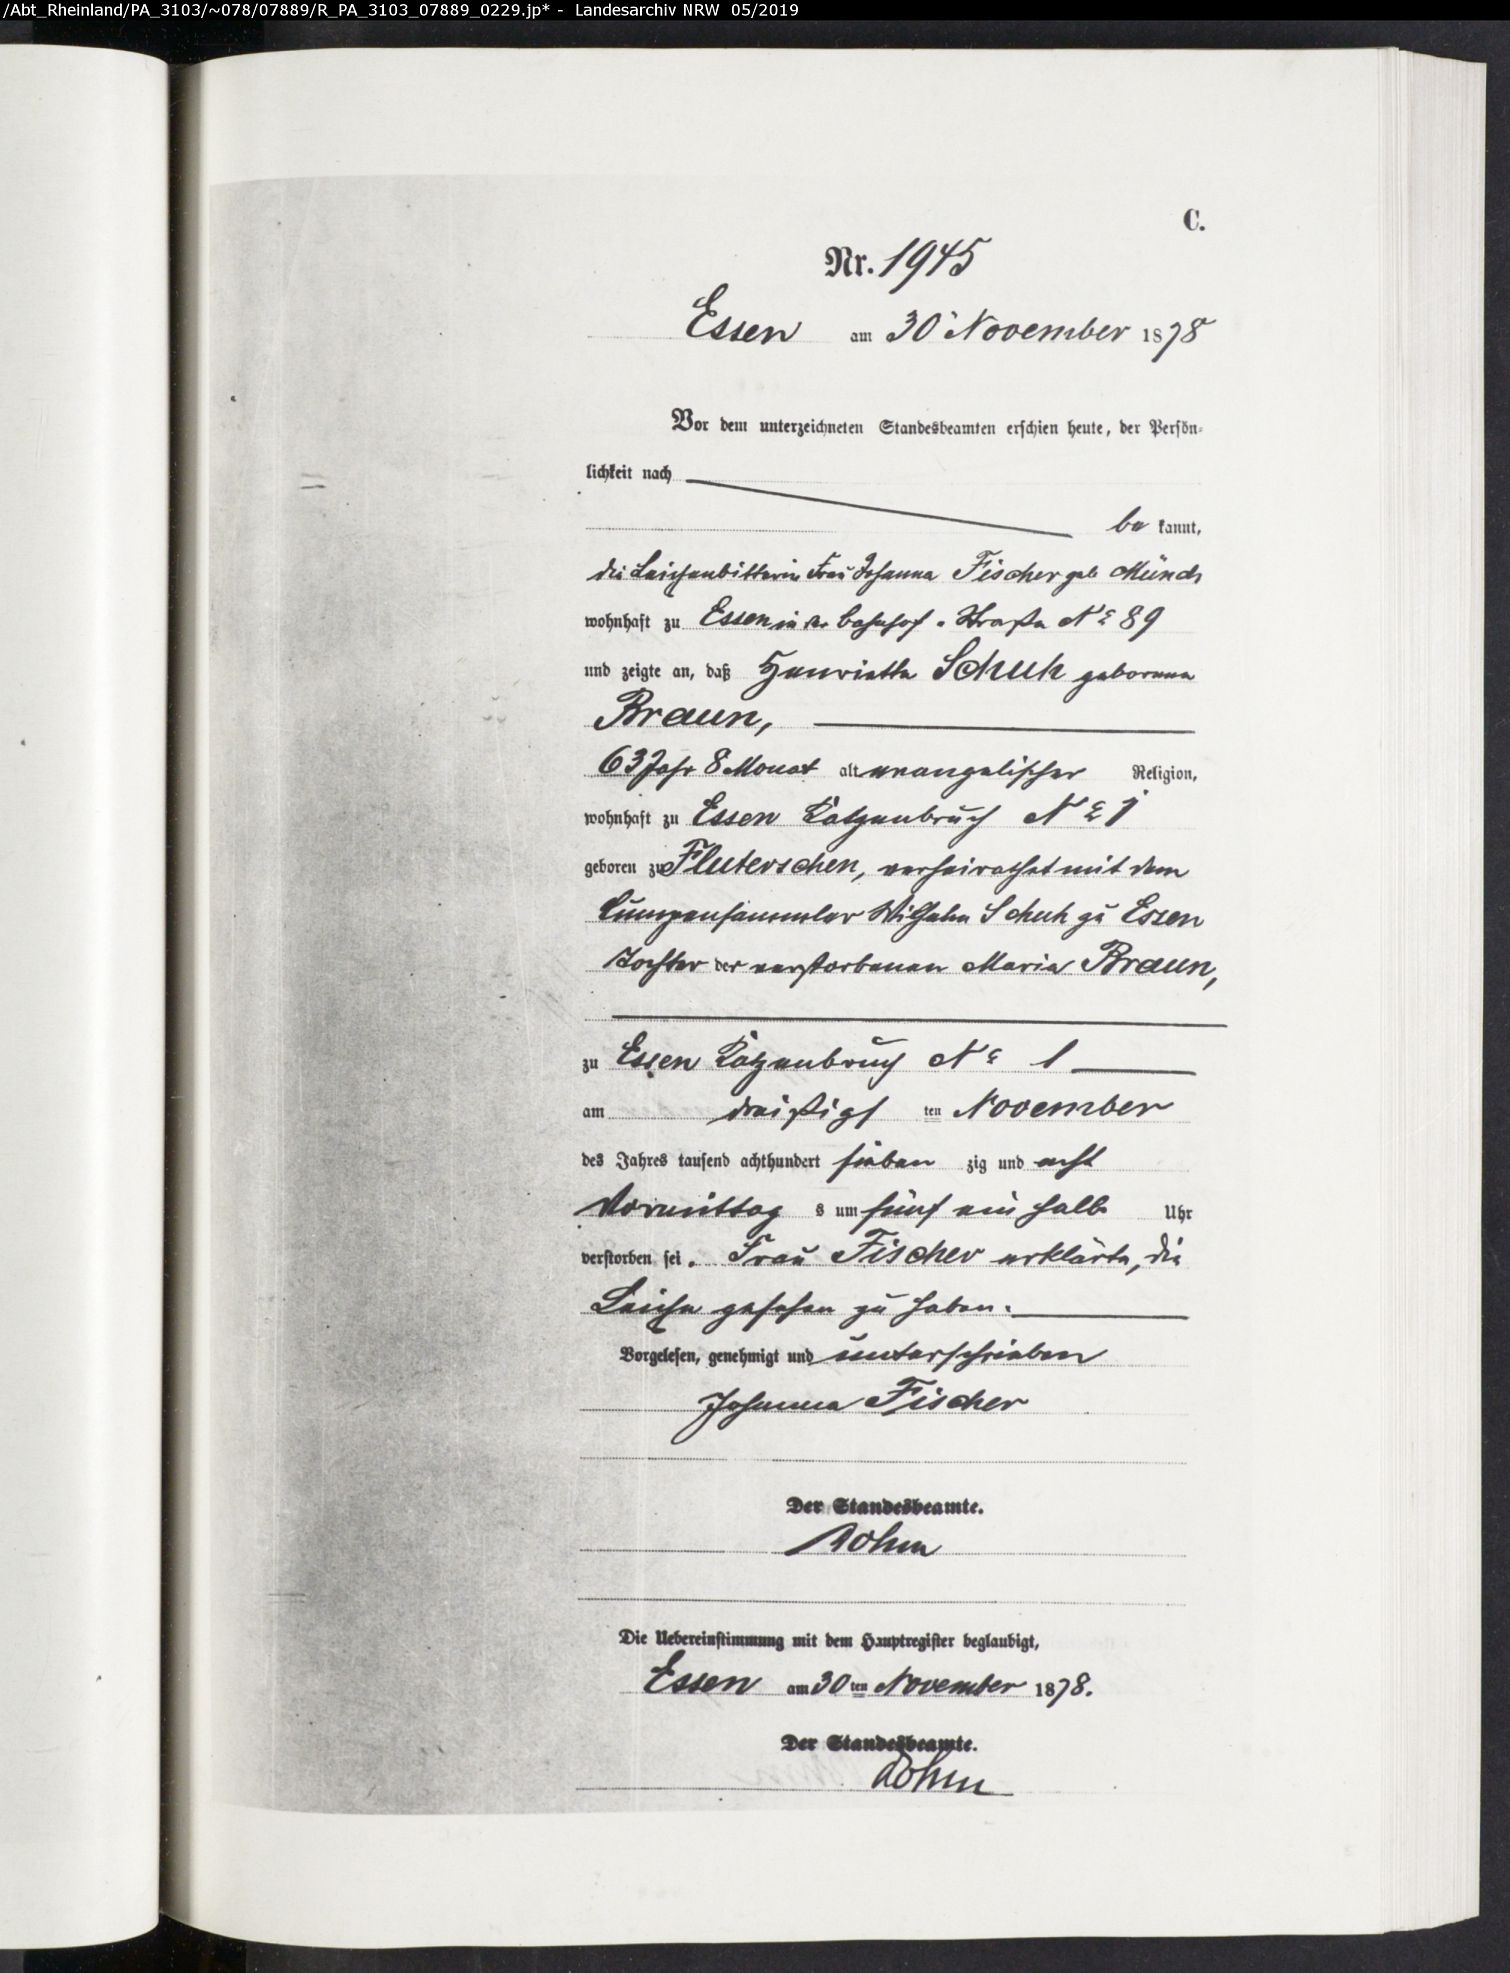 /Abt_Rheinland/PA_3103/~078/07889/R_PA_3103_07889_0229.jp* - Landesarchiv NRW 05/2019
C.
Nr. 1945
Essen am 30 November 1878
Vor dem unterzeichneten Standesbeamten erschien heute, der Persön-
lichkeit nach
be kannt,
die Leichenbitterin Frau Johanna Fischer geb Münch
wohnhaft zu Essen in der Bahnhof-Straße No 89
und zeigte an, daß Henriette Schuh geborene
Braun,
63 Jahr 8 Monat alt evangelischer Religion,
wohnhaft zu Essen Kotzenbruch No 1
geboren zu Fluterschen, verheirathet mit dem
Lumpensammler Wilhelm Schuh zu Essen
Tochter der verstorbenen Maria Braun,
zu Essen Kotzenbruch No 1
am dreißigs ten November
des Jahres tausend achthundert sieben zig und acht
Vormittag s um fünf ein halb Uhr
verstorben sei. Frau Fischer erklärte, die
Leiche gesehen zu haben.
Vorgelesen, genehmigt und unterschrieben
Johanna Fischer
Der Standesbeamte.
Die Uebereinstimmung mit dem Hauptregister beglaubigt,
Essen am 30 ten November 1878.
Der Standesbeamte.